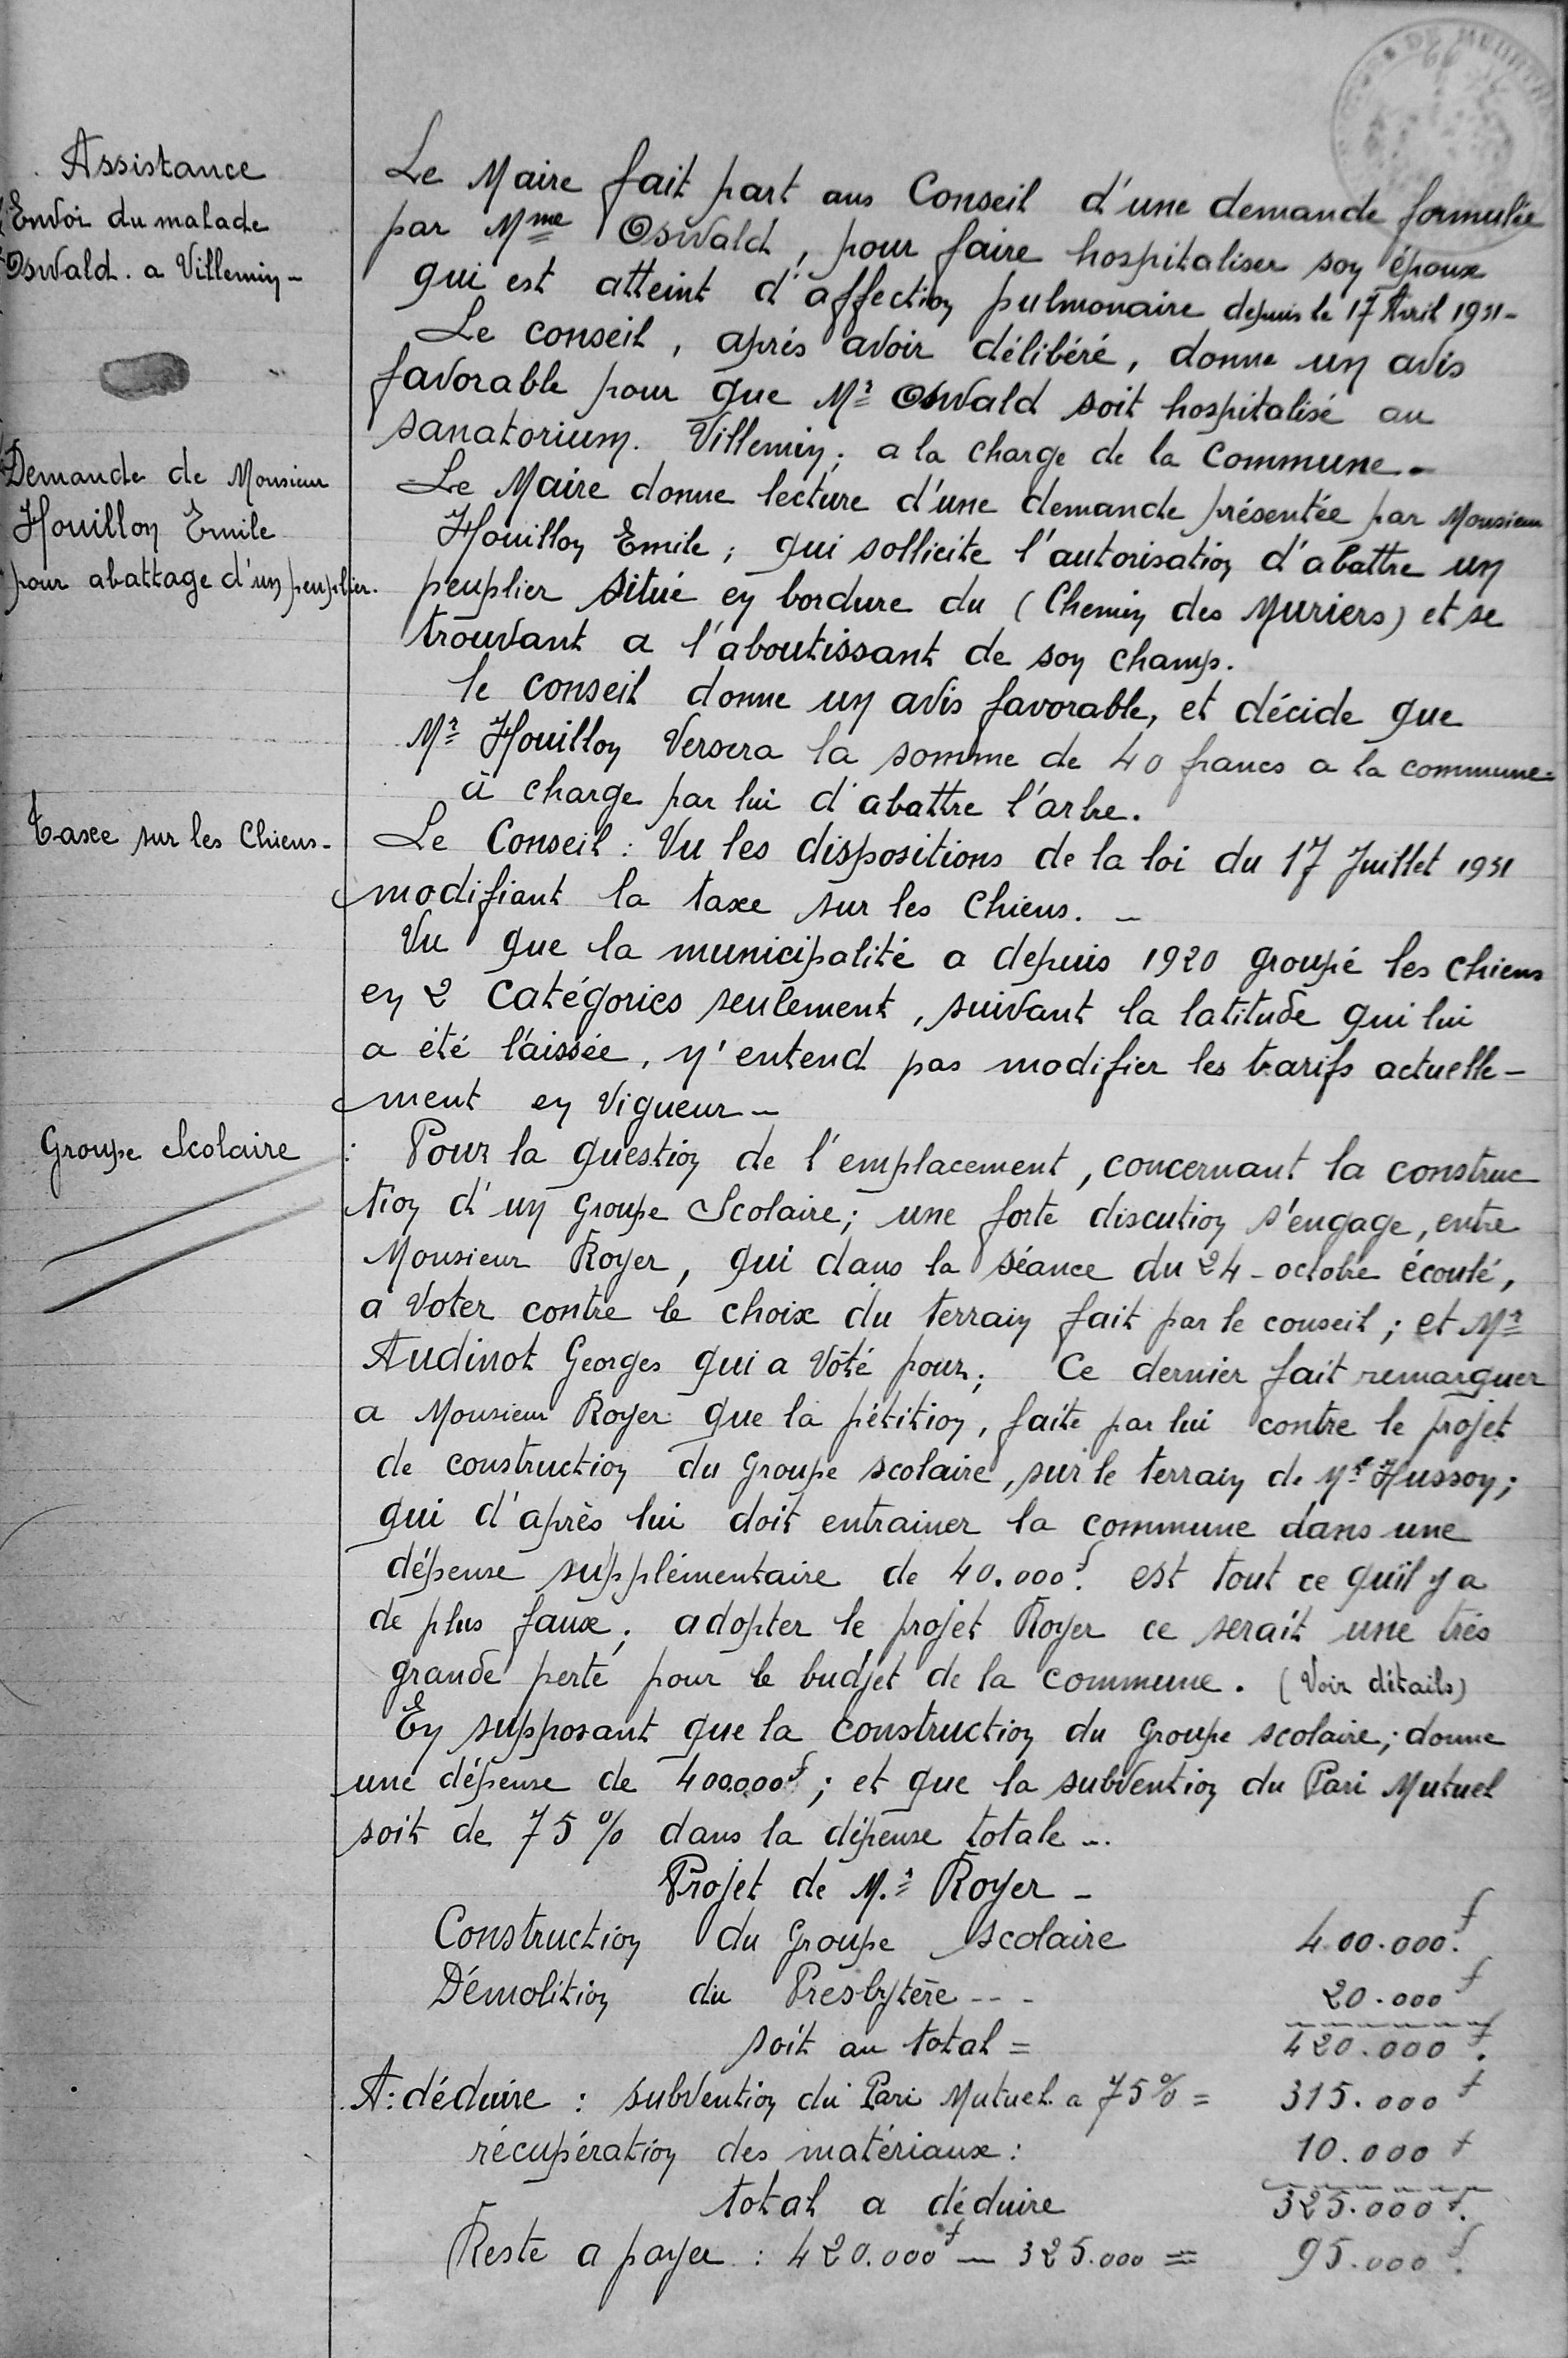 Assistance
Envoi du malade
Oswald. a Villemin -
Le Maire fait part aus Conseil d'une demande formulée
par Mme Oswald, pour faire hospitaliser son époux
qui est atteint d'affection pulmonaire depuis le 17 Avril 1931 -
Le conseil, aprés avoir délibéré, donne un avis
favorable pour que Mr Oswald soit hospitalisé au
sanatorium. Villemin; a la charge de la Commune. -
Demande de Monsieur
Houillon Emile
pour abattage d'un peuplier.
Le Maire donne lecture d'une demande présentée par Monsieur
Houillon Emile; qui sollicite l'autorisation d'abattre un
peuplier situé en bordure du (Chemin des Muriers) et se
trouvant a l'aboutissant de son champ.
le conseil donne un avis favorable, et décide que
Mr Houillon Versera la somme de 40 francs a la commune =
à charge par lui d'abattre l'arbre.
Taxe sur les Chiens -
Le Conseil : Vu les dispositions de la loi du 17 Juillet 1931
modifiant la taxe sur les Chiens. -
Vu que la municipalité a depuis 1920 groupé les chiens
en 2 Catégories seulement, suivant la latitude qui lui
a été laissée, n'entend pas modifier les tarifs actuelle-
ment en Vigueur -
Groupe Scolaire
: Pour la question de l'emplacement, concernant la construc
tion d'un Groupe Scolaire; une forte discution s'engage, entre
Monsieur Royer, qui dans la séance du 24 - octobre écoulé,
a Voter contre le choix du terrain fait par le conseil; et Mr
Audinot Georges qui a Voté pour; Ce dernier fait remarquer
a Monsieur Royer que la pétition, faite par lui contre le projet
de construction du Groupe scolaire, sur le terrain de Mr Husson;
qui d'après lui doit entrainer la commune dans une
dépense supplémentaire de 40.000f. est tout ce qu'il y a
de plus faux; adopter le projet Royer ce serait une trés
grande perte pour le budjet de la commune. (Voir détails)
En supposant que la construction du Groupe scolaire; donne
une dépense de 400.000f; et que la subvention du Pari Mutuel
soit de 75 % dans la dépense totale -.
Projet de Mr Royer -
Construction du Groupe scolaire 400.000f.
Démolition du Presbytère - - - 20.000f
soit au total = 420.000f.
A: déduire : subvention du Pari Mutuel a 75% = 315.000f
récupération des matériaux : 10.000f
total a déduire 325.000f.
Reste a payer : 420.000f - 325.000 = 95.000f.